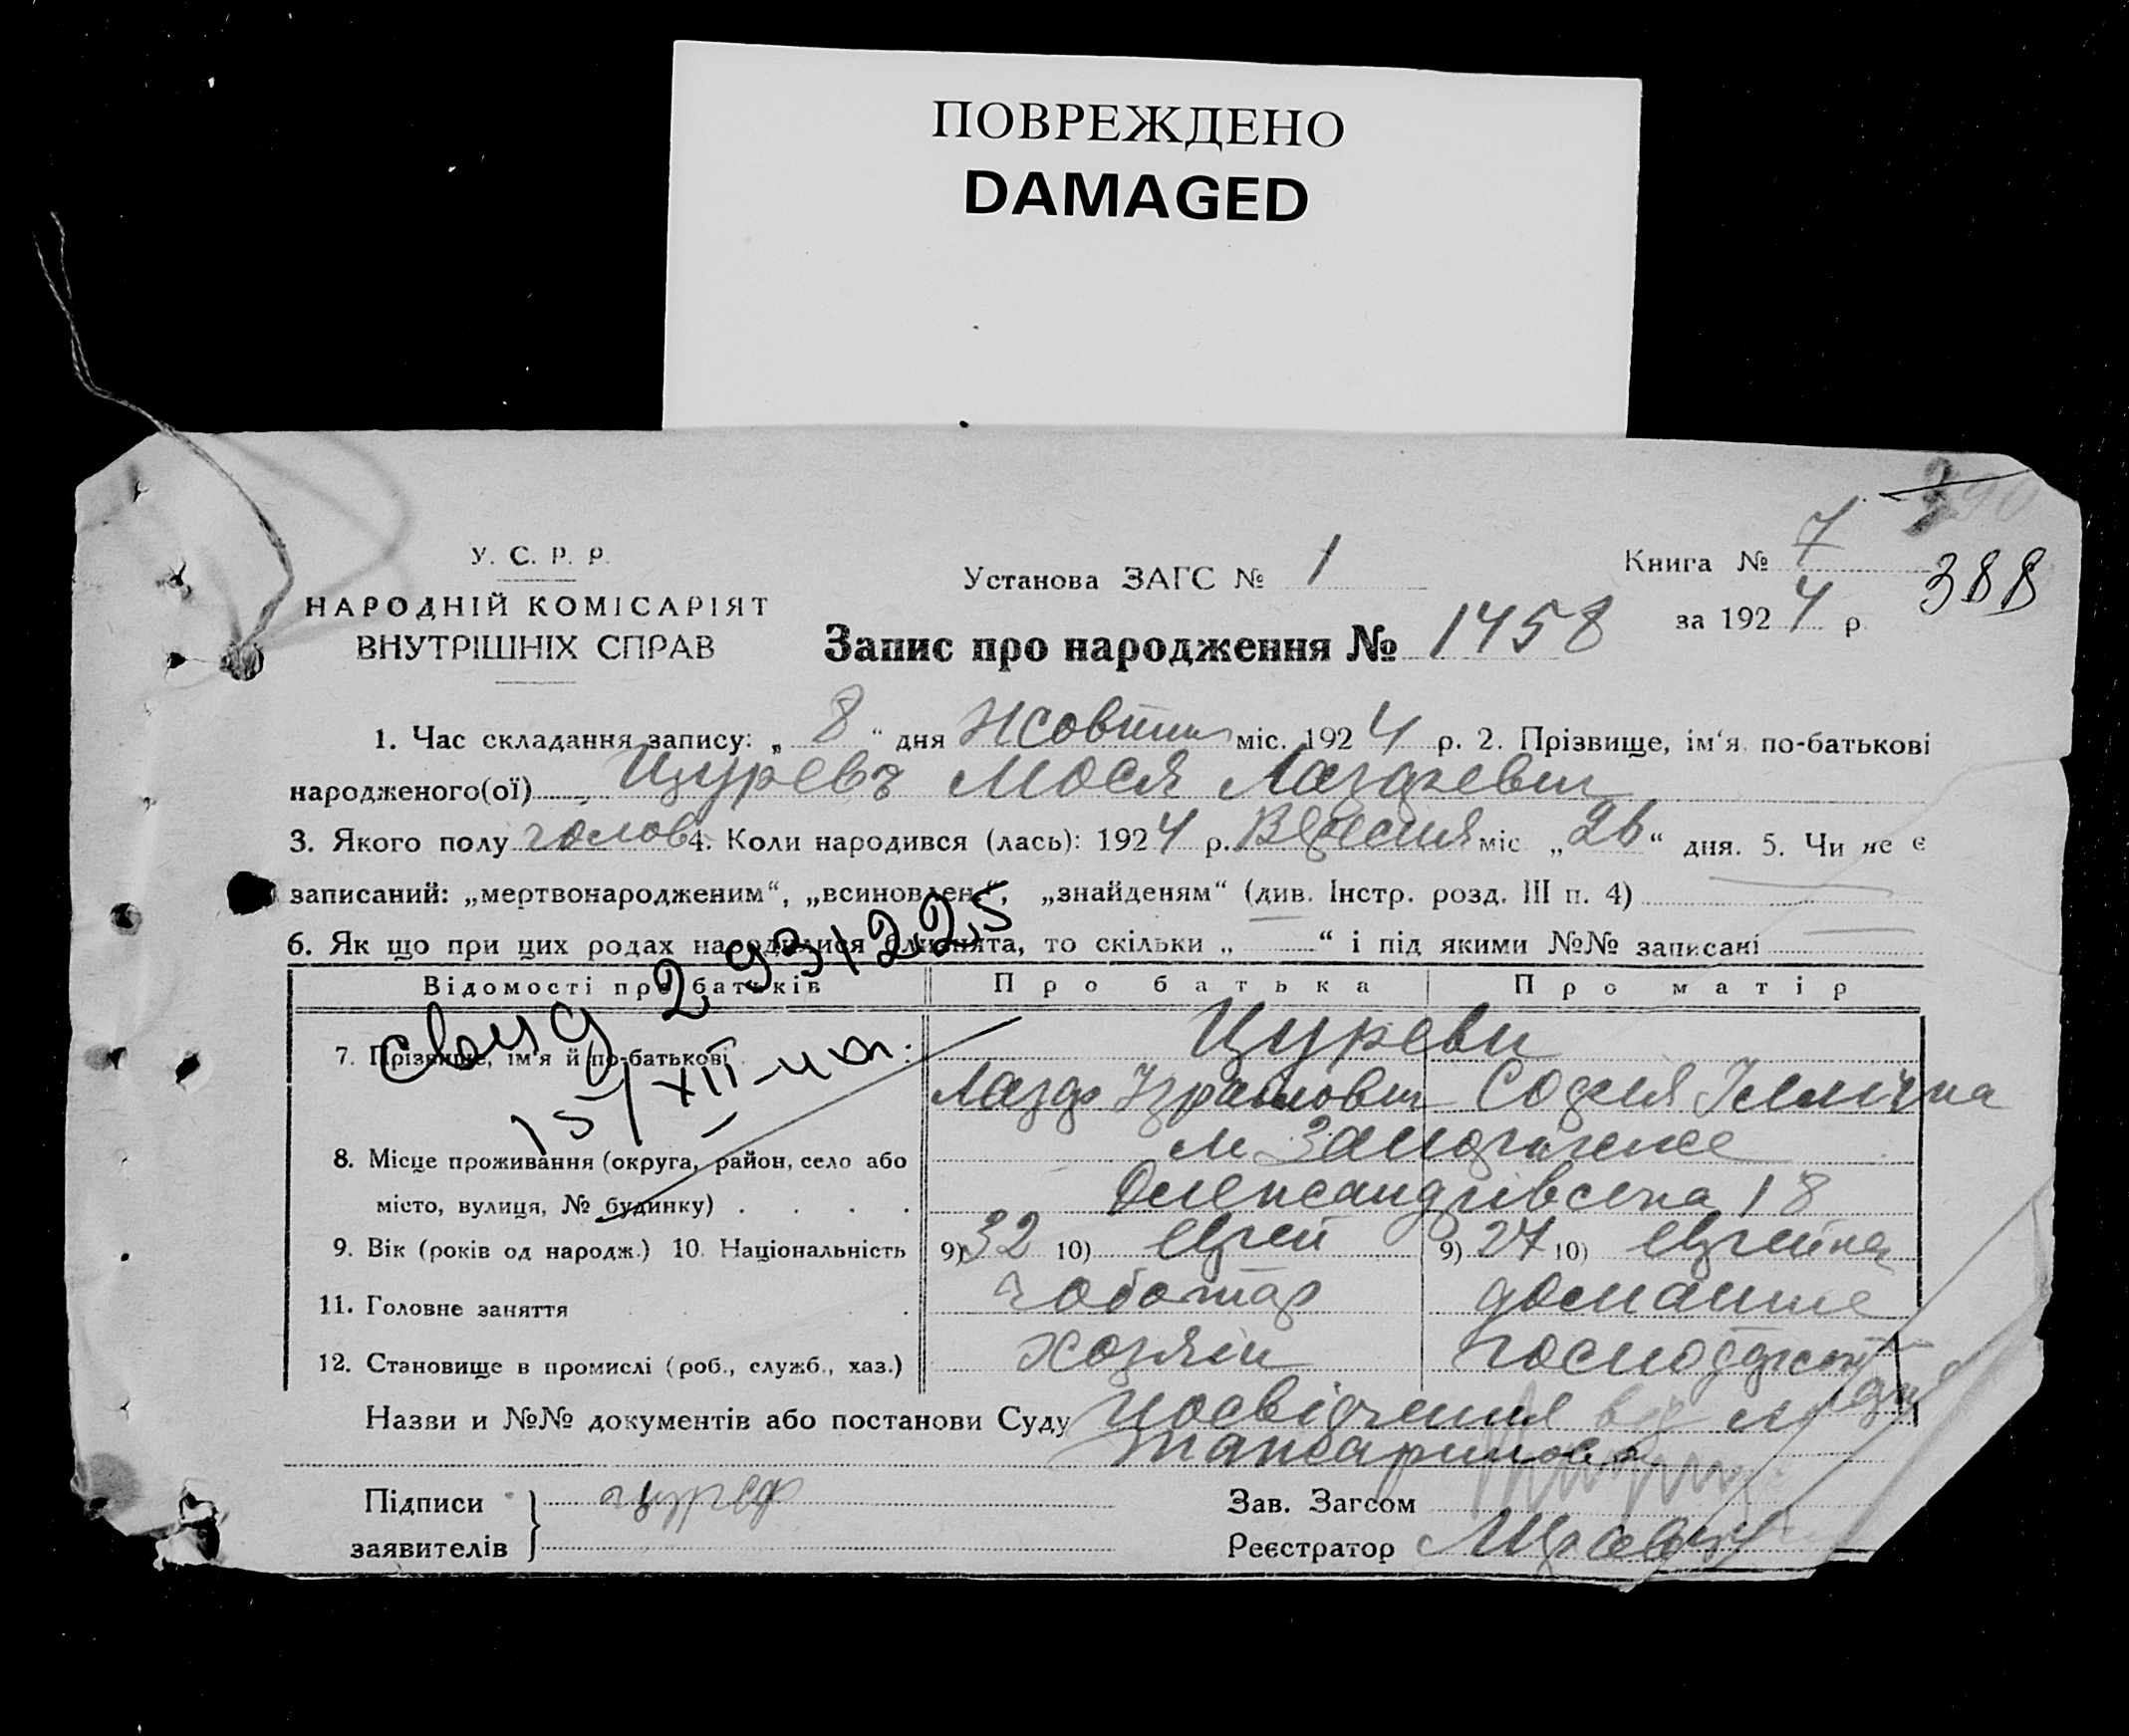 ПОВРЕЖДЕНО
DAMAGED
390
У. С. Р. Р.
НАРОДНІЙ КОМІСАРІЯТ
ВНУТРІШНІХ СПРАВ
Установа ЗАГС № 1
Книга № 7
за 1924 р.
388
Запис про народження № 1458
1. Час складання запису: „ 8 “ дня Жовтня міс. 1924 р. 2. Прізвище, ім‘я по-батькові
народженого(ої) Цуревъ Мося Лазаревич
3. Якого полу чолов 4. Коли народився (лась): 1924 р. Вересня міс „26“ дня. 5. Чи не є
записаний: „мертвонародженим“, „всиновлен.“, „знайденям“ (див. Інстр. розд. III п. 4)
6. Як що при цих родах народилися близнята, то скільки „ “ і під якими №№ записані
Відомості про батьків Про батька Про матір
7. Прізвище, ім‘я й по-батькові Цуреви
Лазар Ізраїлович Софія Іллічна
8. Місце проживання (округа, район, село або м Запоріжже
місто, вулиця, № будинку) Олександрівська 18
9. Вік (років од народж.) 10. Національність 9) 32 10) Єврей 9) 27 10) Єврейка
11. Головне заняття чоботар домашнє
12. Становище в промислі (роб., служб., хаз.) хозяїн господарст
Назви и №№ документів або постанови Суду посвідчення від
Підписи
заявителів
Зав. Загсом
Реєстратор
2,93/2225
15/XII